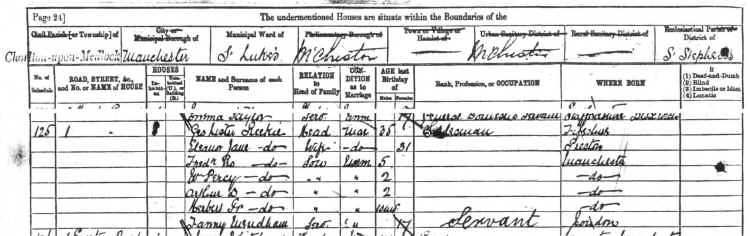 Page 24] The undermentioned Houses are situate within the Boundaries of the
Civil Parish [or Township] of City or Municipal Borough of Municipal Ward of Parliamentary Borough of Town or Village or Hamlet of Urban Sanitary District of Rural Sanitary District of Ecclesiastical Parish or District of
Chorlton-upon-Medlock Manchester St Luke's M'Chester M'Chester St Stephens
No. of Schedule ROAD, STREET, &c., and No. or NAME of HOUSE HOUSES Inhabited Uninhabited (U.), or Building (B.) NAME and Surname of each Person RELATION to Head of Family CONDITION as to Marriage AGE last Birthday of Males Females Rank, Profession, or OCCUPATION WHERE BORN If (1) Deaf-and-Dumb (2) Blind (3) Imbecile or Idiot (4) Lunatic
Emma Taylor Serv Unm 17 General Domestic Servant Staffordshire
125 1 Geo Lister Head Mar 35 Salesman
Elenor Jane - do Wife - do - 31 Preston
Fredk Ro - do - Son Unm 5 Manchester
W Percy - do " " 2 - do -
Arthur D - do " " 2 - do -
Herbert Gr - do " " - do -
Fanny Windham Serv " 17 Servant London